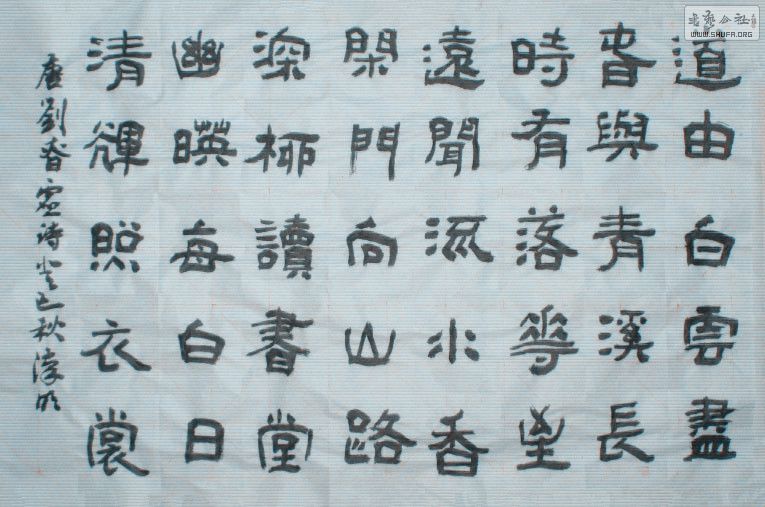 書藝公社
WWW.SHUFA.ORG
道由白雲盡
春與青溪長
時有落華至
遠聞流水香
閑門向山路
深柳讀書堂
幽暎每白日
清輝照衣裳
唐劉昚虛诗癸巳秋